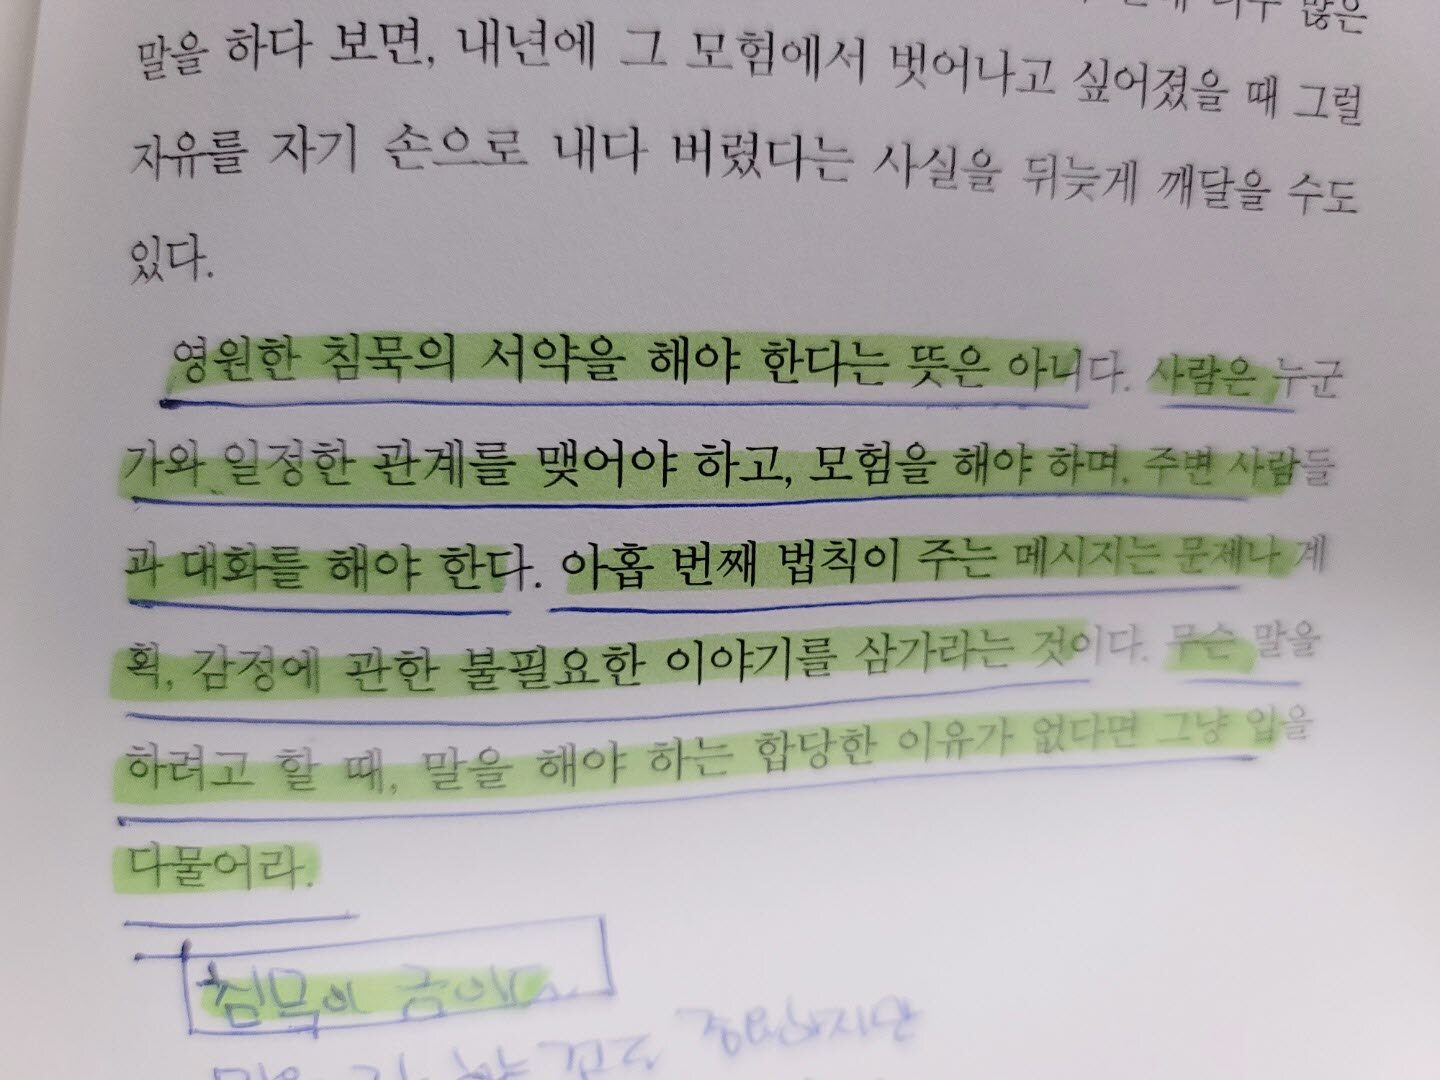 많은
말을 하다 보면, 내년에 그 모험에서 벗어나고 싶어졌을 때 그럴
자유를 자기 손으로 내다 버렸다는 사실을 뒤늦게 깨달을 수도
있다.
영원한 침묵의 서약을 해야 한다는 뜻은 아니다. 사람은 누군
가와 일정한 관계를 맺어야 하고, 모험을 해야 하며, 주변 사람들
과 대화를 해야 한다. 아홉 번째 법칙이 주는 메시지는 문제나 계
획, 감정에 관한 불필요한 이야기를 삼가라는 것이다. 무슨 말을
하려고 할 때, 말을 해야 하는 합당한 이유가 없다면 그냥 입을
다물어라.
침묵이 금이다